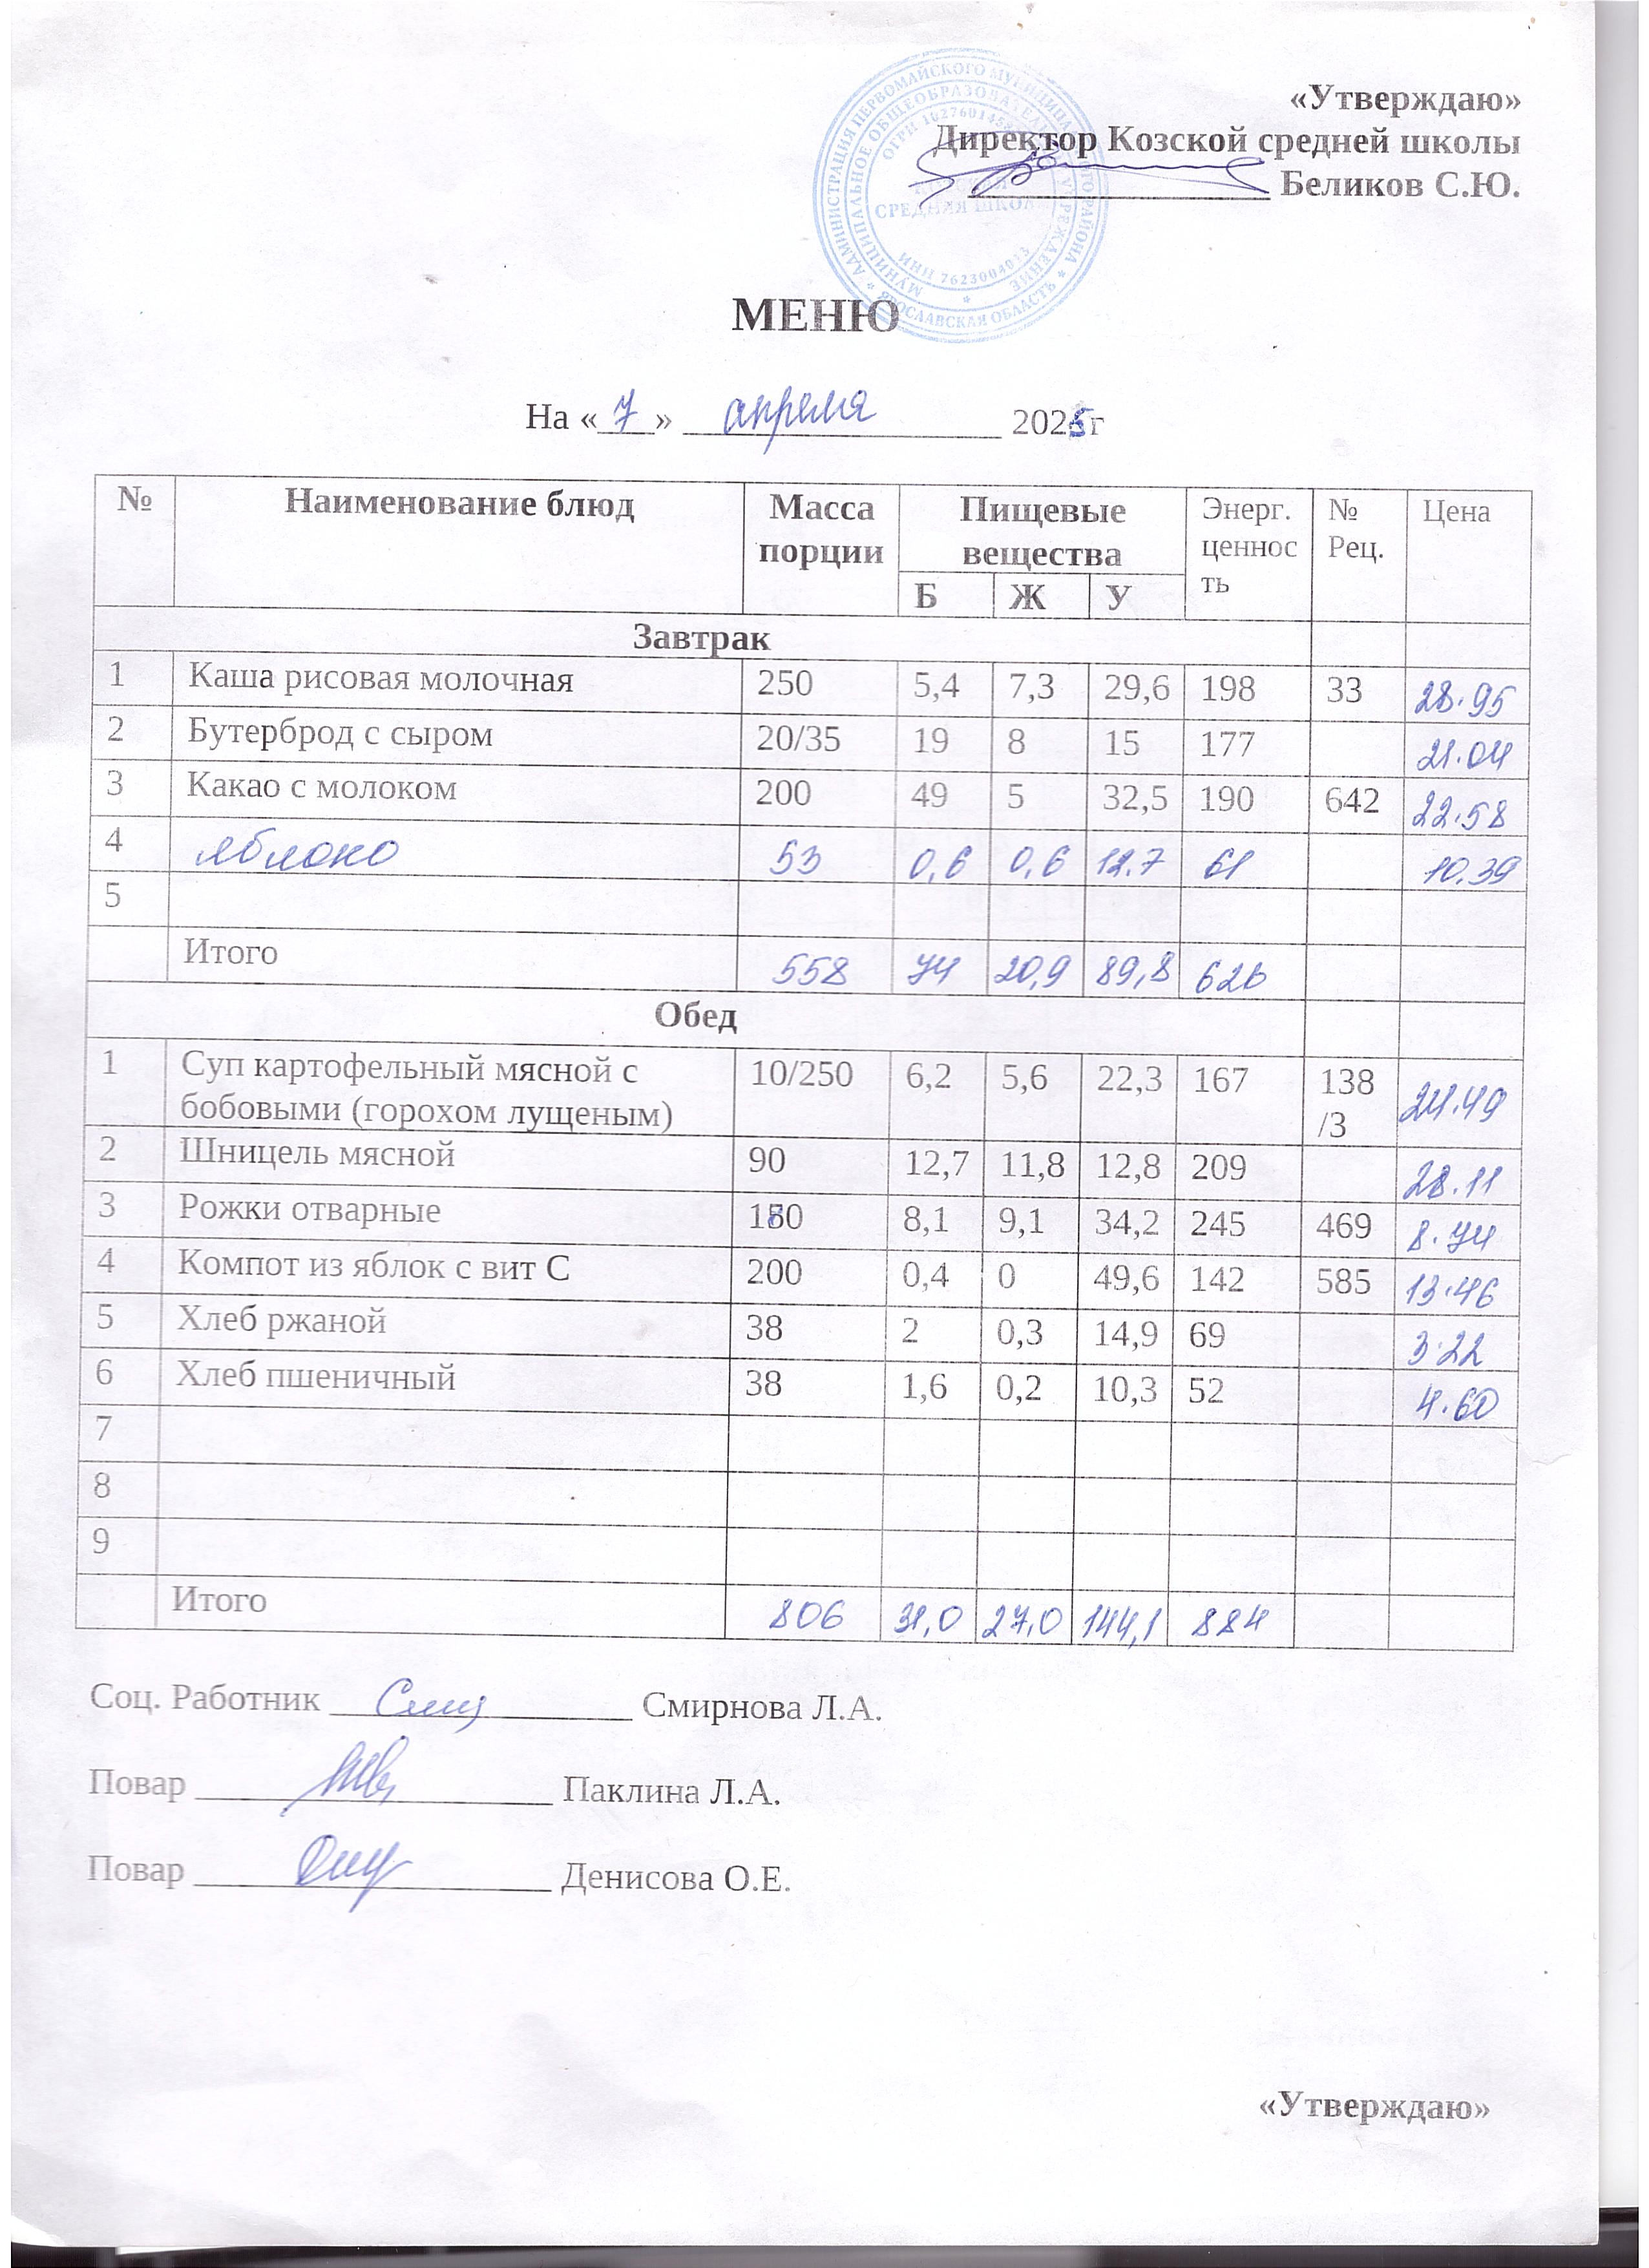 «Утверждаю»
Директор Козской средней школы
Беликов С.Ю.
АДМИНИСТРАЦИЯ ПЕРВОМАЙСКОГО РАЙОНА * ЯРОСЛАВСКАЯ ОБЛАСТЬ *
МУНИЦИПАЛЬНОЕ УЧРЕЖДЕНИЕ
СРЕДНЯЯ ШКОЛА
ИНН 7623004013
МЕНЮ
На «7» апреля 2025г
№ Наименование блюд Масса порции Пищевые вещества Энерг. ценность № Рец. Цена
Б Ж У
Завтрак
1 Каша рисовая молочная 250 5,4 7,3 29,6 198 33 28.95
2 Бутерброд с сыром 20/35 19 8 15 177 21.04
3 Какао с молоком 200 49 5 32,5 190 642 22.58
4 яблоко 53 0,6 0,6 12.7 61 10.39
5
Итого 558 74 20,9 89,8 626
Обед
1 Суп картофельный мясной с 10/250 6,2 5,6 22,3 167 138 24.49
бобовыми (горохом лущеным) /3
2 Шницель мясной 90 12,7 11,8 12,8 209 28.11
3 Рожки отварные 180 8,1 9,1 34,2 245 469 8.74
4 Компот из яблок с вит С 200 0,4 0 49,6 142 585 13.46
5 Хлеб ржаной 38 2 0,3 14,9 69 3.22
6 Хлеб пшеничный 38 1,6 0,2 10,3 52 4.60
7
8
9
Итого 806 31,0 27,0 144,1 884
Соц. Работник Смирнова Л.А.
Повар Паклина Л.А.
Повар Денисова О.Е.
«Утверждаю»